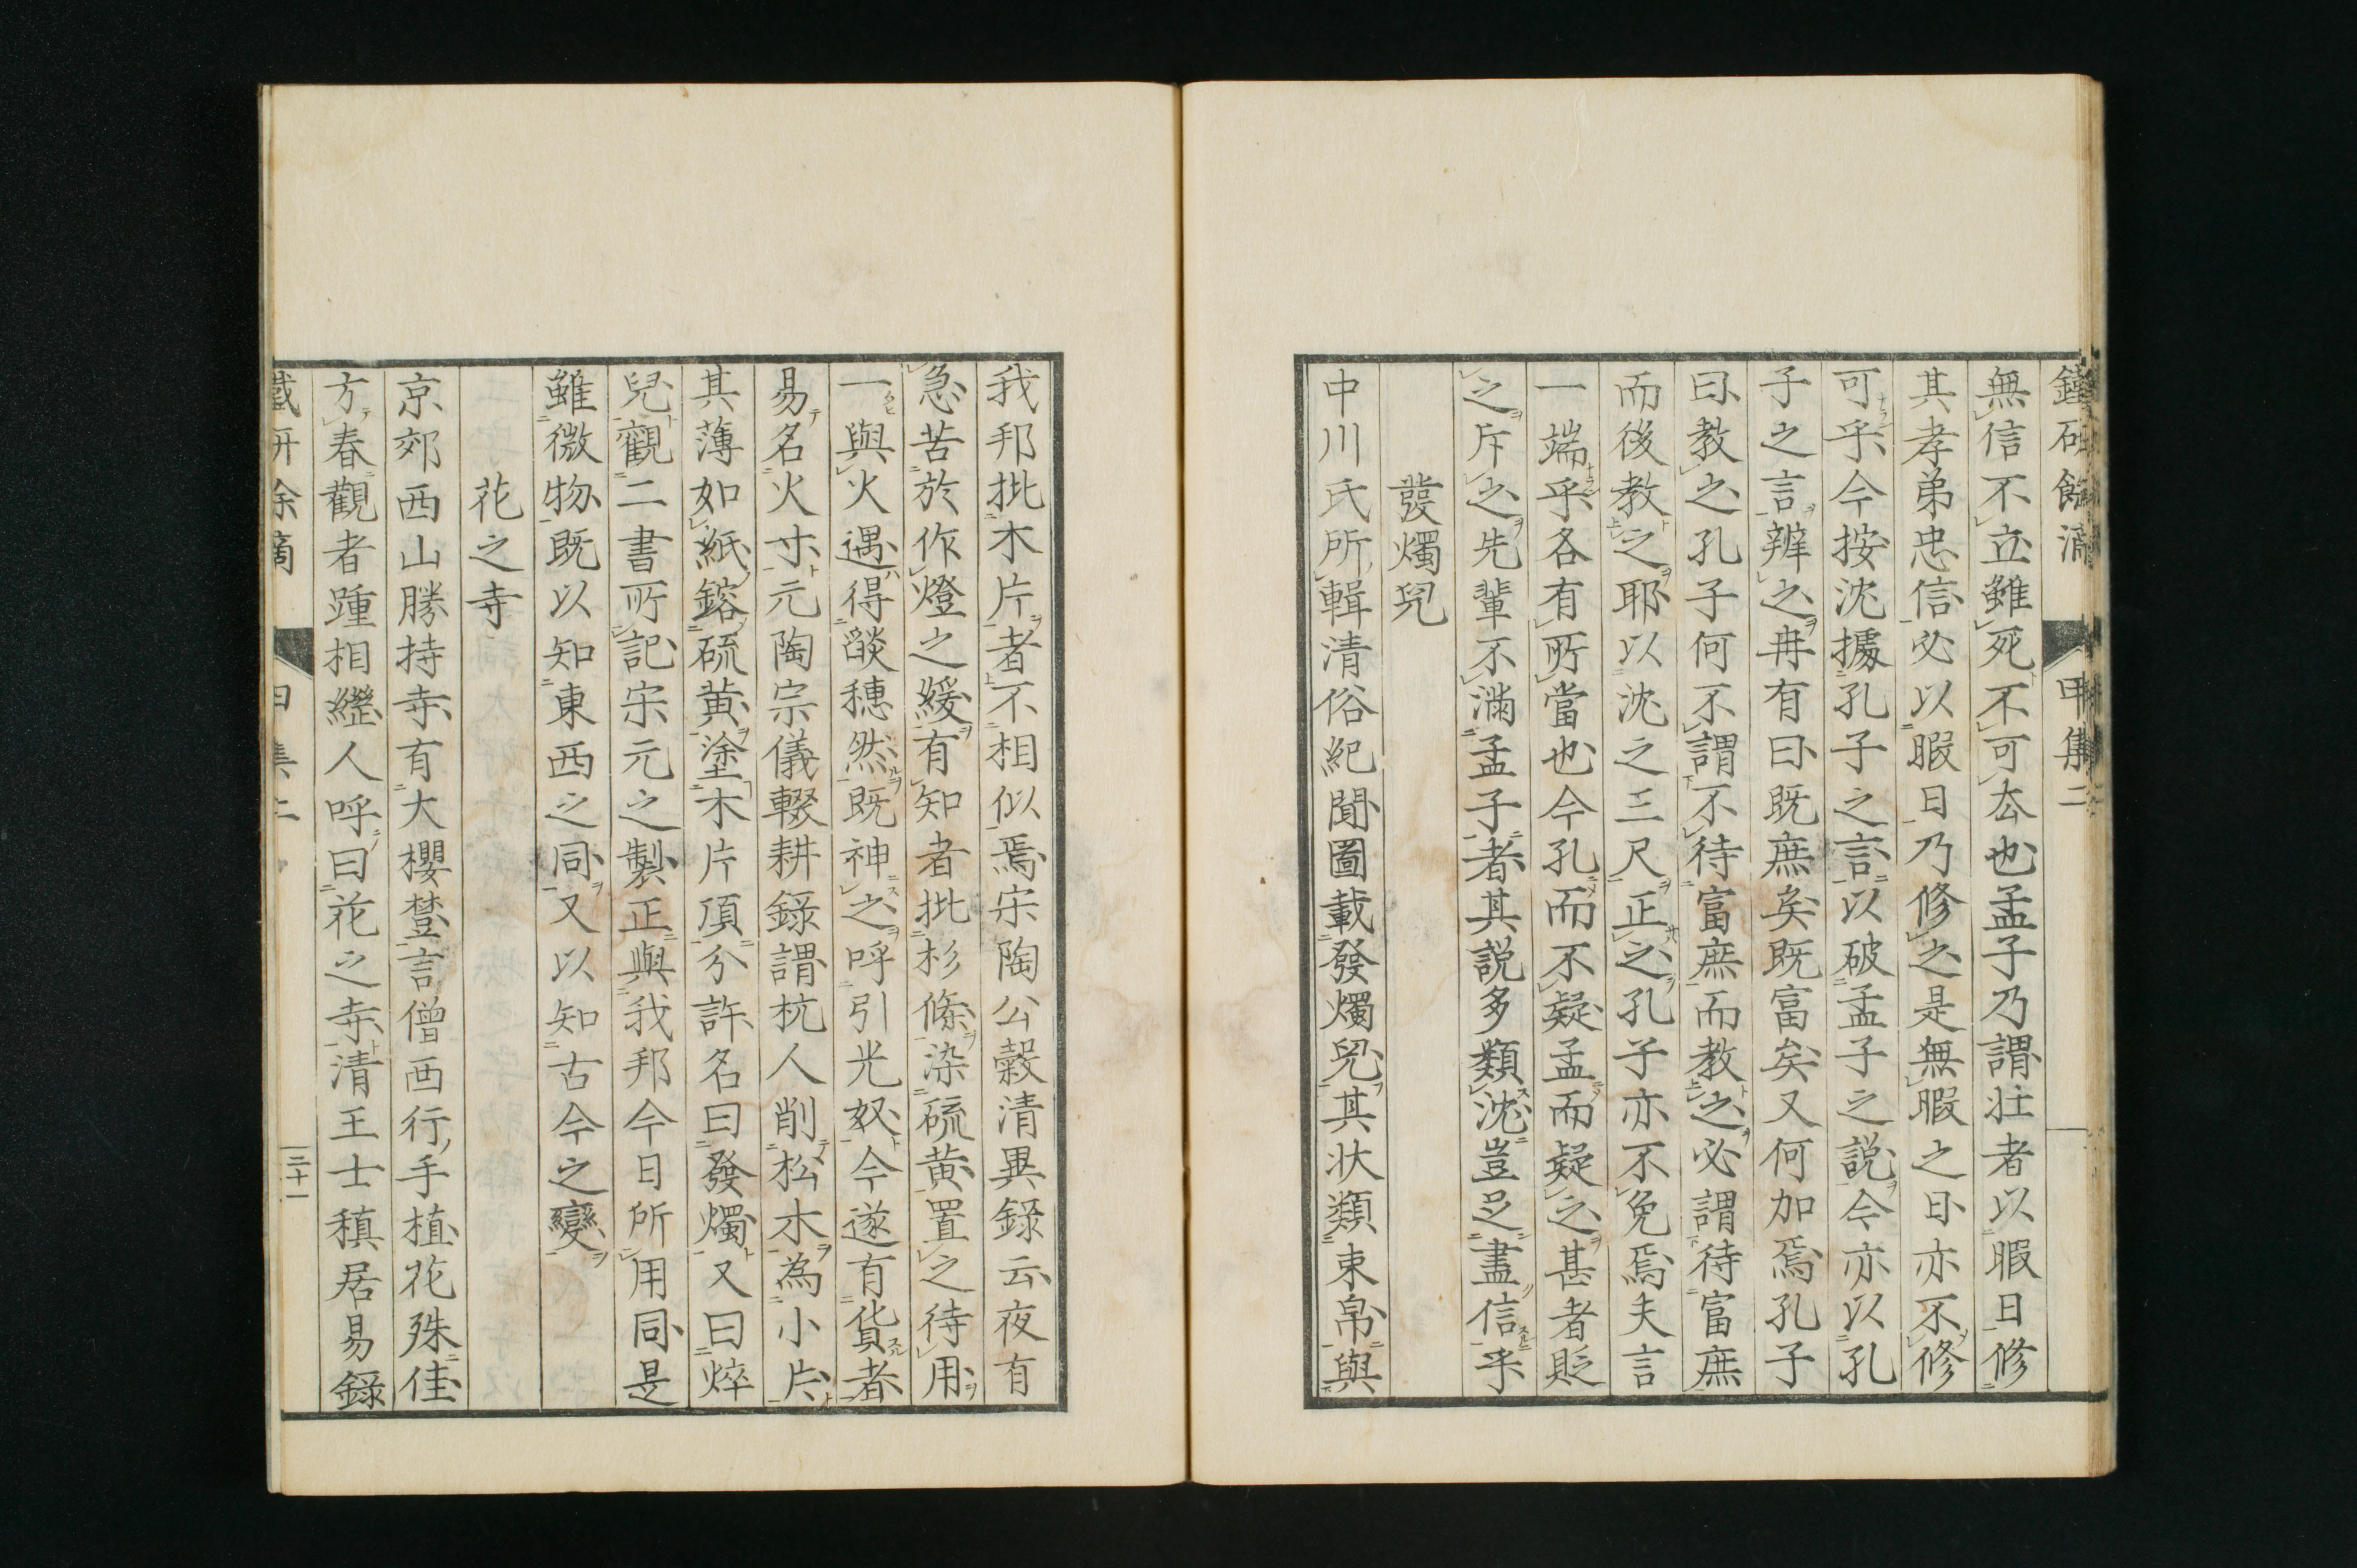 無信不立雖死不可去也孟子乃謂壮者以暇日修
其孝弟忠信必以暇日乃修之是無暇之日亦不修
可乎今按沈據孔子之言以破孟子之説今亦以孔
子之言辨之冉有曰既庶矣既富矣又何加焉孔子
曰教之孔子何不謂不待富庶而教之必謂待富庶
而後教之耶以沈之三尺正之孔子亦不免焉夫言
一端乎各有所當也今孔而不疑孟而疑之甚者貶
之斥之先輩不滿孟子者其説多類沈豈足盡信乎
發燭兒
中川氏所輯清俗紀聞圖載發燭兒其状類束帛與
我邦批木片者不相似焉宋陶公穀清異録云夜有
急苦於作燈之緩有知者批杉條染硫黄置之待用
一與火遇得燄穗然既神之呼引光奴今遂有貨者
易名火寸元陶宗儀輟耕録謂杭人削松木為小片
其薄如紙鎔硫黄塗木片頂分許名曰發燭又曰焠
兒觀二書所記宋元之製正與我邦今日所用同是
雖微物既以知東西之同又以知古今之變
花之寺
京郊西山勝持寺有大櫻樹言僧西行手植花殊佳
方春觀者踵相繼人呼曰花之寺清王士稹居易録
三十一